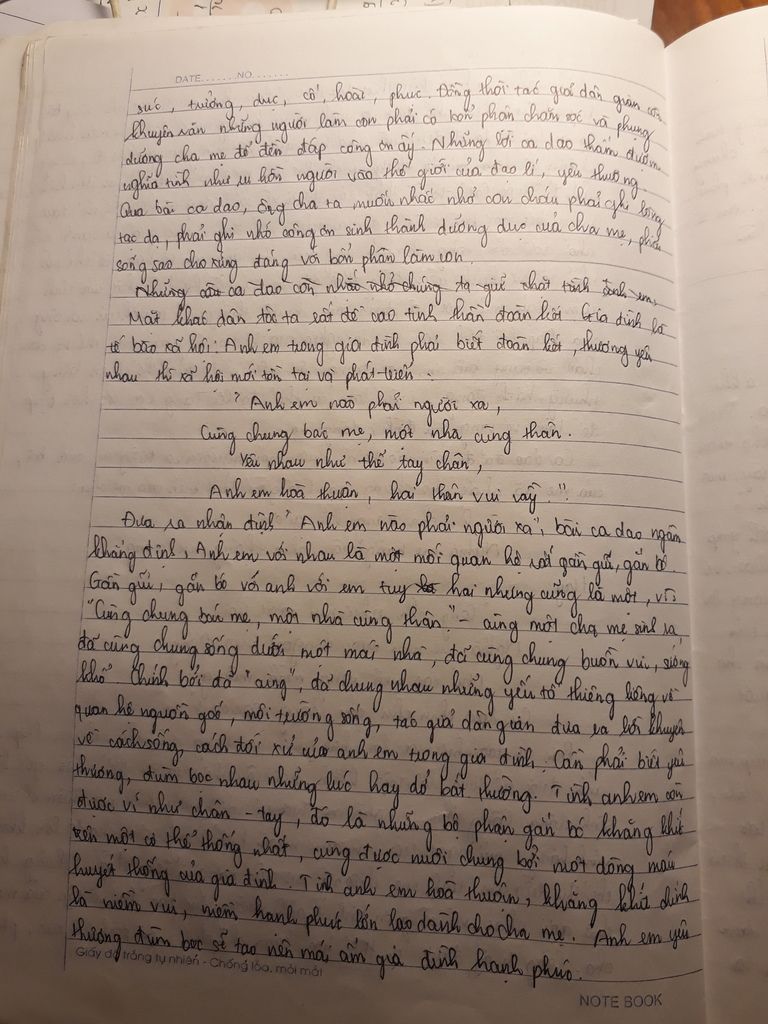 DATE.......NO.......
súc, trưởng, dục, cố, hoài, phục. Đồng thời tác giả dân gian còn
khuyên răn những người làm con phải có bổn phận chăm sóc và phụng
dưỡng cha mẹ để đền đáp công ơn ấy. Những lời ca dao thấm đượm
nghĩa tình như ru hồn người vào thế giới của đạo lí, yêu thương.
Qua bài ca dao, ông cha ta muốn nhắc nhở con cháu phải ghi lòng
tạc dạ, phải ghi nhớ công ơn sinh thành dưỡng dục của cha mẹ, phải
sống sao cho xứng đáng với bổn phận làm con.
Những câu ca dao còn nhắc nhở chúng ta giữ chặt tình anh em.
Mặt khác dân tộc ta rất đề cao tinh thần đoàn kết. Gia đình là
tế bào xã hội: Anh em trong gia đình phải biết đoàn kết, thương yêu
nhau thì xã hội mới tồn tại và phát triển:
"Anh em nào phải người xa,
Cùng chung bác mẹ, một nhà cùng thân.
Yêu nhau như thể tay chân,
Anh em hoà thuận, hai thân vui vầy."
Đưa ra nhận định "Anh em nào phải người xa", bài ca dao ngầm
khẳng định, Anh em với nhau là một mối quan hệ rất gần gũi, gắn bó.
Gần gũi, gắn bó với anh với em tuy hai nhưng cũng là một, vì:
"Cùng chung bác mẹ, một nhà cùng thân" - cùng một cha mẹ sinh ra,
đã cùng chung sống dưới một mái nhà, đã cùng chung buồn vui, sướng
khổ. Chính bởi đã "cùng", đã chung nhau những yếu tố thiêng liêng về
quan hệ nguồn gốc, môi trường sống, tác giả dân gian đưa ra lời khuyên
về cách sống, cách đối xử của anh em trong gia đình. Cần phải biết yêu
thương, đùm bọc nhau những lúc hay dở bất thường. Tình anh em còn
được ví như chân - tay, đó là những bộ phận gắn bó khăng khít
trên một cơ thể thống nhất, cùng được nuôi chung bởi một dòng máu
huyết thống của gia đình. Tình anh em hoà thuận, khăng khít chính
là niềm vui, niềm hạnh phúc lớn lao dành cho cha mẹ. Anh em yêu
thương đùm bọc sẽ tạo nên mái ấm gia đình hạnh phúc.
Giấy độ trắng tự nhiên - Chống lóa, mỏi mắt
NOTE BOOK